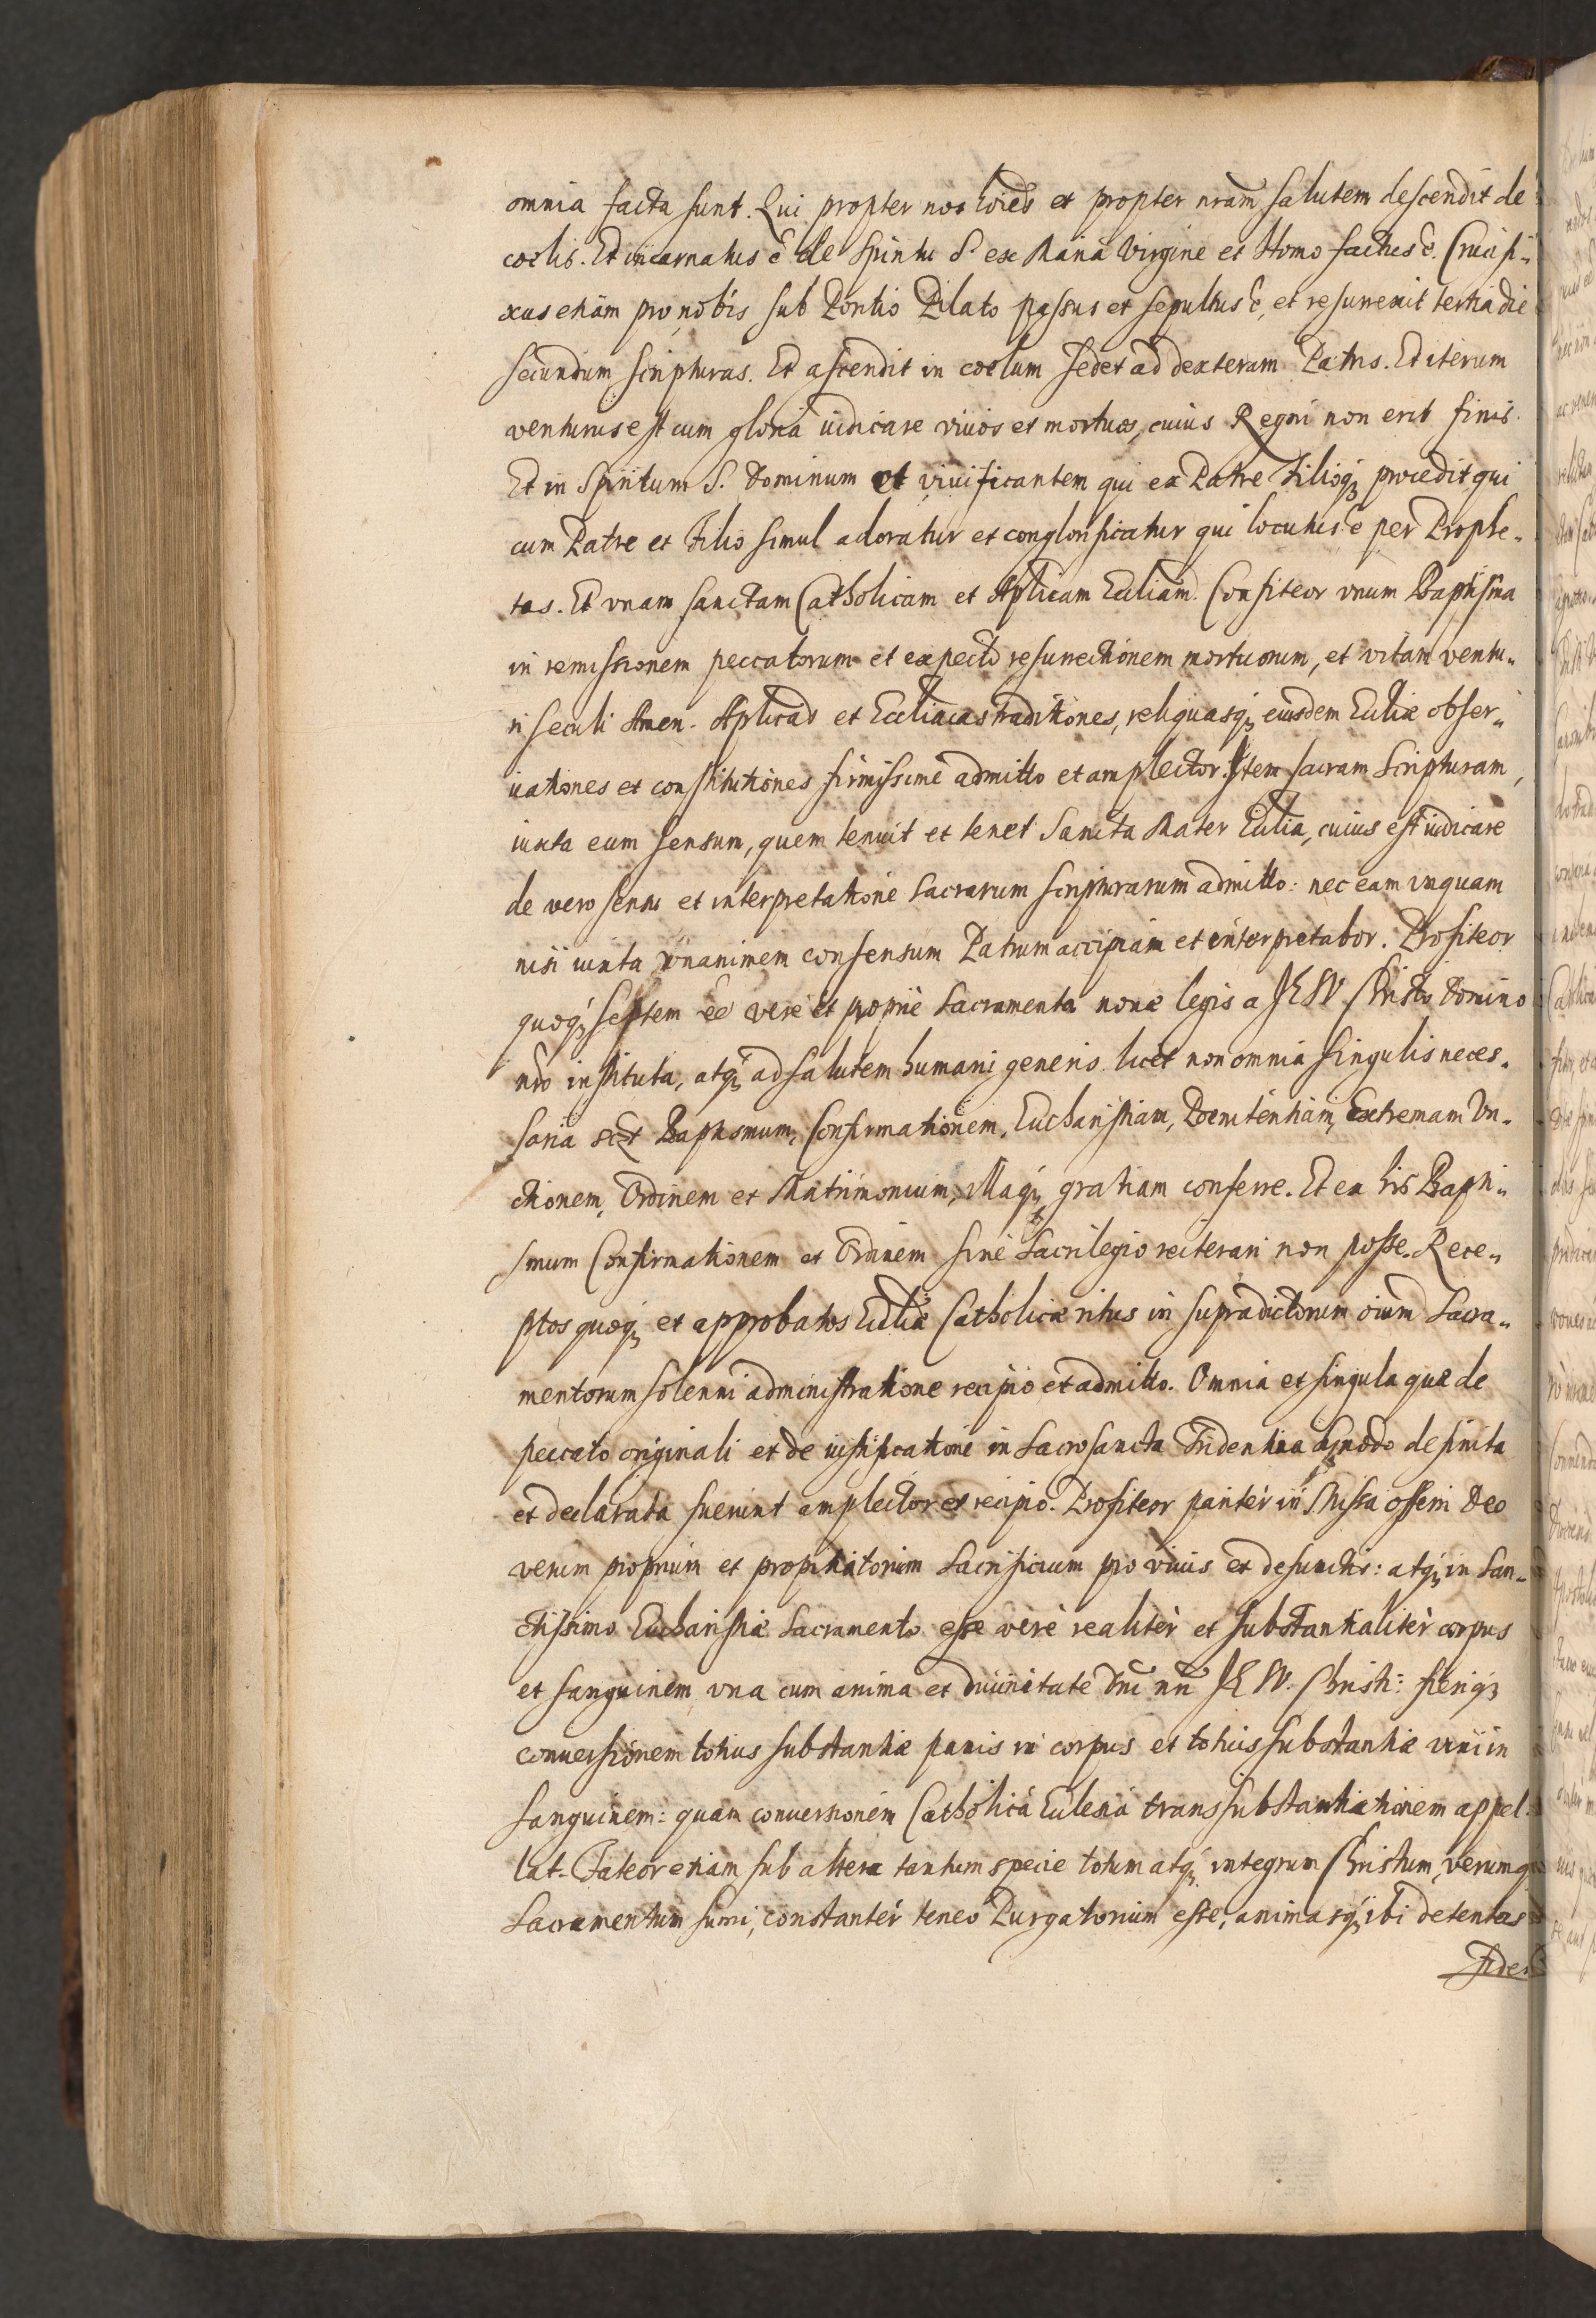 omnia facta sunt. Qui propter nos hoīes et propter nrām salutem descendit de
coelis. Et incarnatus ē de Spiritu S. ex Maria Virgine et Homo factus ē. Crucifi„
xus etiam pro nobis sub Pontio Pilato passus et sepultus ē, et resurrexit tertia die
secundum scripturas. Et ascendit in coelum sedet ad dexteram Patris. Et iterum
venturus est cum gloria iudicare viuos et mortuos, cuius Regni non erit finis.
Et in Spiritum S. Dominum et viuificantem qui ex Patre Filioq; procedit qui
cum Patre et Filio simul adoratur et conglorificatur qui locutus ē per Prophe„
tas. Et vnam sanctam Catholicam et Aplicam Eccliam. Confiteor vnum Baptisma
in remissionem peccatorum et expecto resurrectionem mortuorum, et vitam ventu„
ri seculi Amen. Aplicas et Eccliacas traditiones, reliquasq; eiusdem Eccliæ obser„
uationes et constitutiones firmissime admitto et amplector. Item sacram Scripturam,
iuxta eum sensum, quem tenuit et tenet Sancta Mater Ecclia, cuius est iudicare
de vero sensu et interpretatione sacrarum scripturarum admitto: nec eam vnquam
nisi iuxta vnanimem consensum Patrum accipiam et interpretabor. Profiteor
quoq; septem eē vere et proprie Sacramenta nouæ legis a JESV Christo Domino
nrō instituta, atq; ad salutem humani generis licet non omnia singulis neces„
saria scɀ Baptismum, Confirmationem, Eucharistiam, Poenitentiam, Extremam Vn„
ctionem, Ordinem et Matrimonium, Illaq; gratiam conferre. Et ex his Bapti„
smum Confirmationem et Ordinem sine Sacrilegio reiterari non posse. Rece„
ptos quoq; et approbatos Eccliæ Catholicæ ritus in supradictorum oium Sacra„
mentorum solenni administratione recipio et admitto. Omnia et singula quæ de
peccato originali et de iustificatione in Sacrosancta Tridentina synodo definita
et declarata fuerint amplector et recipio. Profiteor pariter in Missa offerri Deo
verum proprium et propitiatorium Sacrificium pro viuis et defunctis: atq; in San„
ctissimo Eucharistiæ Sacramento esse vere realiter et substantialiter corpus
et sanguinem vna cum anima et diuinitate Dni nri JESV. Christi: fieriq;
conuersionem totius substantiæ panis in corpus et totius substantiæ vini in
sanguinem: quam conuersionem Catholica Eclesia transsubstantiationem appel
lat. Fateor etiam sub altera tantum specie totum atq; integrum Christum, verumq
Sacramentum sumi, constanter teneo Purgatorium esse, animasq; ibi detentas
Fide